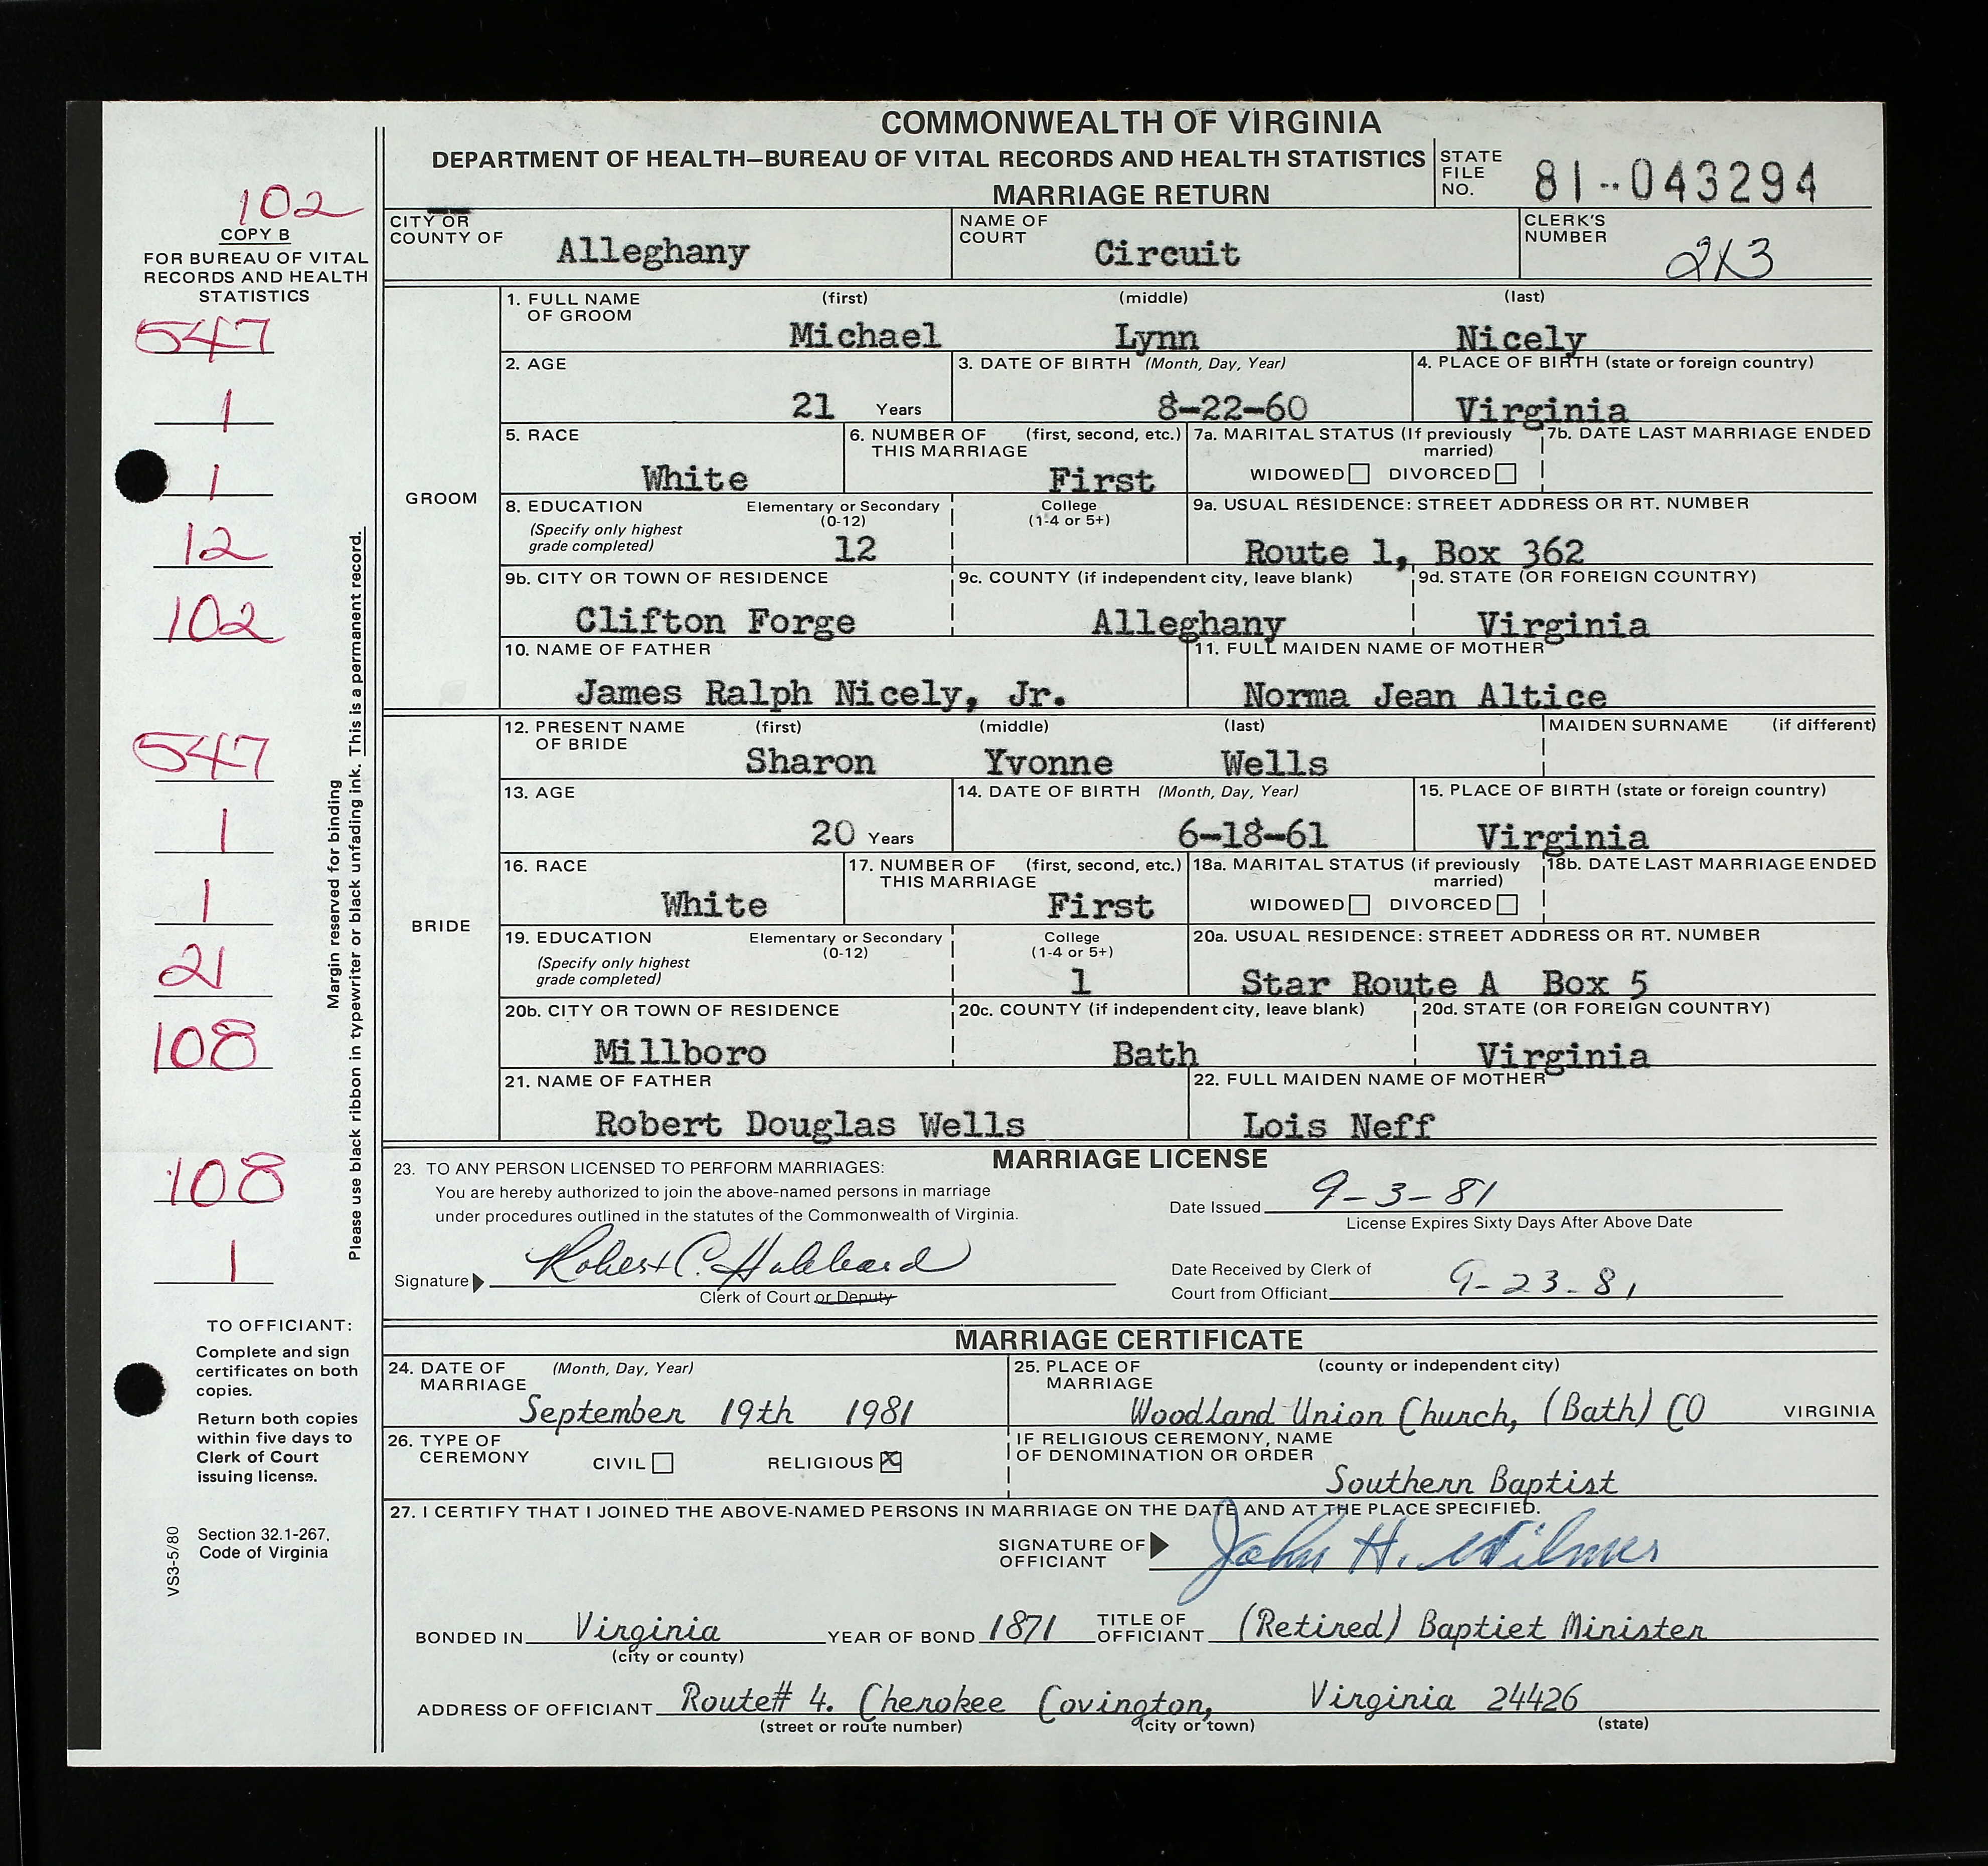 COMMONWEALTH OF VIRGINIA
DEPARTMENT OF HEALTH—BUREAU OF VITAL RECORDS AND HEALTH STATISTICS
MARRIAGE RETURN
STATE FILE NO. 81-043294
102
COPY B
FOR BUREAU OF VITAL
RECORDS AND HEALTH
STATISTICS
547
1
1
12
102
547
1
1
21
108
108
1
Margin reserved for binding
Please use black ribbon in typewriter or black unfading ink. This is a permanent record.
TO OFFICIANT:
Complete and sign
certificates on both
copies.
Return both copies
within five days to
Clerk of Court
issuing license.
Section 32.1-267,
Code of Virginia
VS3-5/80
CITY OR COUNTY OF Alleghany
NAME OF COURT Circuit
CLERK'S NUMBER 213
GROOM
1. FULL NAME OF GROOM (first) (middle) (last)
Michael Lynn Nicely
2. AGE 21 Years
3. DATE OF BIRTH (Month, Day, Year) 8-22-60
4. PLACE OF BIRTH (state or foreign country) Virginia
5. RACE White
6. NUMBER OF THIS MARRIAGE (first, second, etc.) First
7a. MARITAL STATUS (If previously married) WIDOWED DIVORCED
7b. DATE LAST MARRIAGE ENDED
8. EDUCATION (Specify only highest grade completed) Elementary or Secondary (0-12) 12
College (1-4 or 5+)
9a. USUAL RESIDENCE: STREET ADDRESS OR RT. NUMBER Route 1, Box 362
9b. CITY OR TOWN OF RESIDENCE Clifton Forge
9c. COUNTY (if independent city, leave blank) Alleghany
9d. STATE (OR FOREIGN COUNTRY) Virginia
10. NAME OF FATHER James Ralph Nicely, Jr.
11. FULL MAIDEN NAME OF MOTHER Norma Jean Altice
BRIDE
12. PRESENT NAME OF BRIDE (first) (middle) (last)
Sharon Yvonne Wells
MAIDEN SURNAME (if different)
13. AGE 20 Years
14. DATE OF BIRTH (Month, Day, Year) 6-18-61
15. PLACE OF BIRTH (state or foreign country) Virginia
16. RACE White
17. NUMBER OF THIS MARRIAGE (first, second, etc.) First
18a. MARITAL STATUS (if previously married) WIDOWED DIVORCED
18b. DATE LAST MARRIAGE ENDED
19. EDUCATION (Specify only highest grade completed) Elementary or Secondary (0-12)
College (1-4 or 5+) 1
20a. USUAL RESIDENCE: STREET ADDRESS OR RT. NUMBER Star Route A Box 5
20b. CITY OR TOWN OF RESIDENCE Millboro
20c. COUNTY (if independent city, leave blank) Bath
20d. STATE (OR FOREIGN COUNTRY) Virginia
21. NAME OF FATHER Robert Douglas Wells
22. FULL MAIDEN NAME OF MOTHER Lois Neff
MARRIAGE LICENSE
23. TO ANY PERSON LICENSED TO PERFORM MARRIAGES:
You are hereby authorized to join the above-named persons in marriage
under procedures outlined in the statutes of the Commonwealth of Virginia.
Date Issued 9-3-81
License Expires Sixty Days After Above Date
Signature Robert C. Hubbard
Clerk of Court or Deputy
Date Received by Clerk of
Court from Officiant 9-23-81
MARRIAGE CERTIFICATE
24. DATE OF MARRIAGE (Month, Day, Year) September 19th 1981
25. PLACE OF MARRIAGE (county or independent city) Woodland Union Church, (Bath) CO VIRGINIA
26. TYPE OF CEREMONY CIVIL RELIGIOUS X
IF RELIGIOUS CEREMONY, NAME OF DENOMINATION OR ORDER Southern Baptist
27. I CERTIFY THAT I JOINED THE ABOVE-NAMED PERSONS IN MARRIAGE ON THE DATE AND AT THE PLACE SPECIFIED.
SIGNATURE OF OFFICIANT John H. Wilmer
BONDED IN Virginia YEAR OF BOND 1871 TITLE OF OFFICIANT (Retired) Baptiet Minister
(city or county)
ADDRESS OF OFFICIANT Route# 4. Cherokee Covington, Virginia 24426
(street or route number) (city or town) (state)